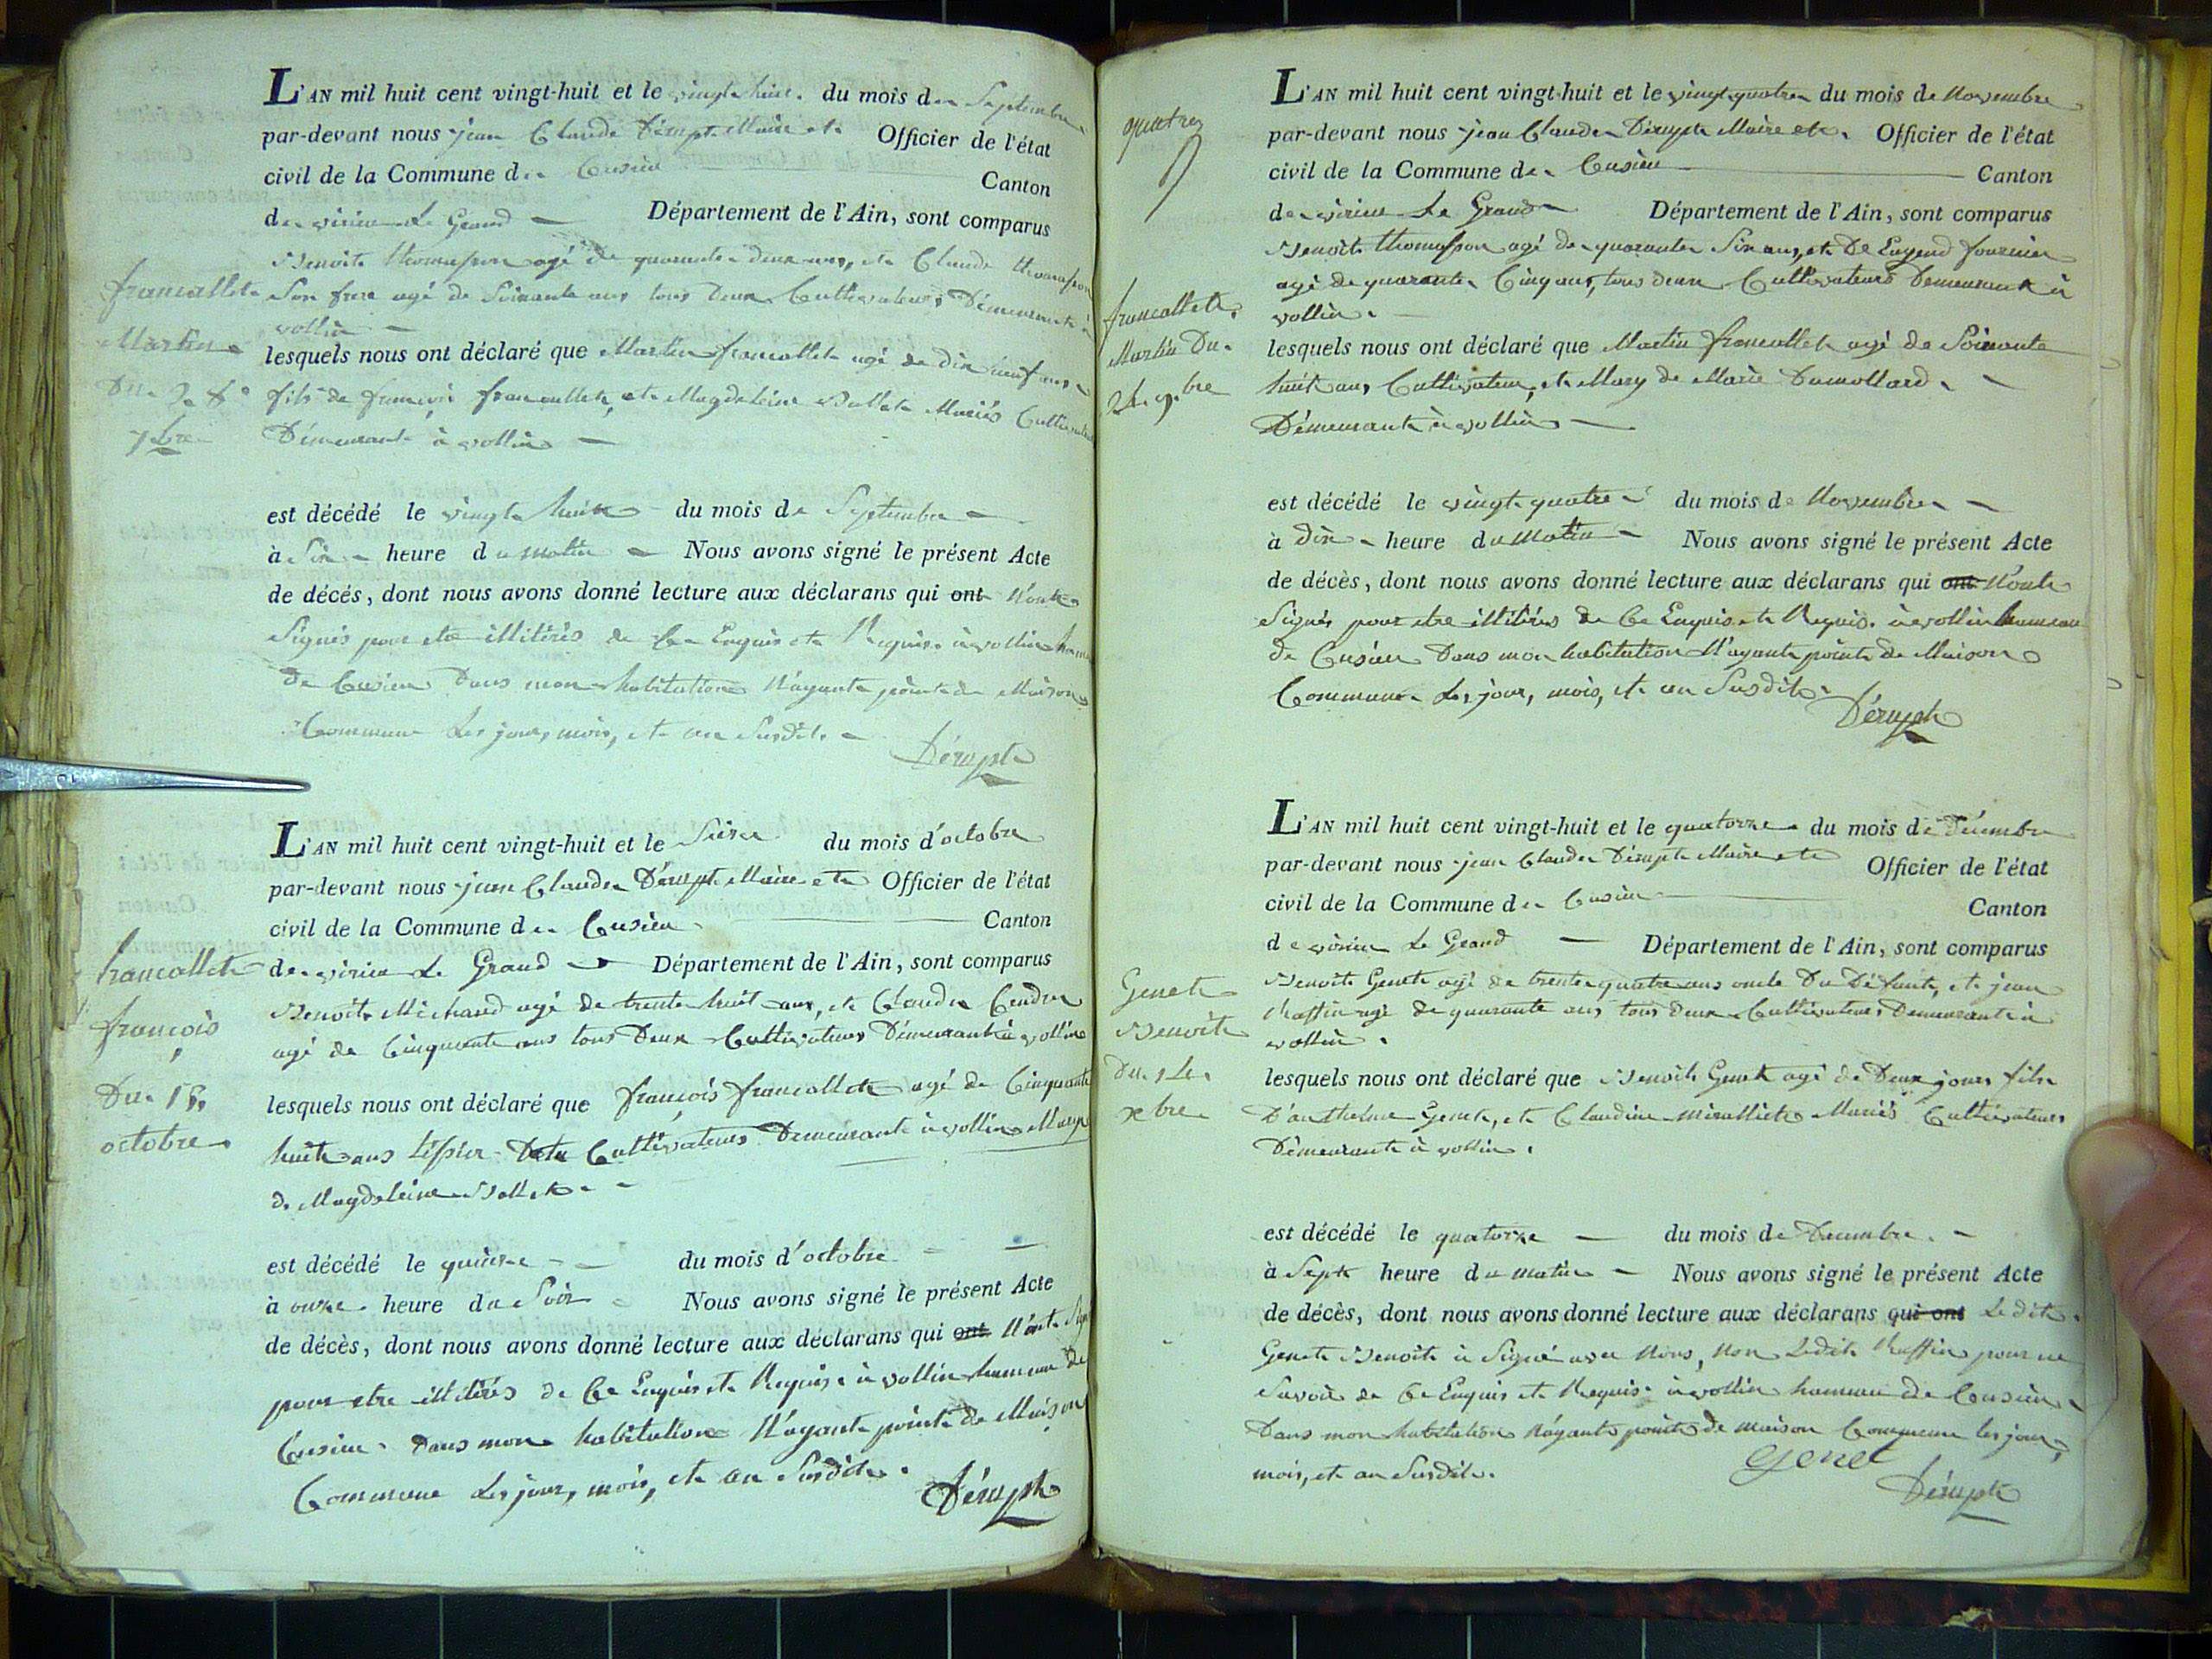 L'AN mil huit cent vingt-huit et le vingt huit du mois de Septembre
par-devant nous jean Claude Dérupt Maire et Officier de l'état
civil de la Commune de Cusieu Canton
de virieu Le Grand Département de l'Ain, sont comparus
Benoit thomasson agé de quarante deux ans, et Claude thomasson
Son frere agé de Soixante ans tous deux Cultivateurs Démeurant à
vollien
francallet
Martin
Du 28
7bre
lesquels nous ont déclaré que Martin francallet agé de dix neuf ans
fils de françois francallet, et Magdeleine Bollet Mariés Cultivateurs
Démeurant à vollien
est décédé le vingt huit du mois de Septembre
à Six heure du matin Nous avons signé le présent Acte
de décès, dont nous avons donné lecture aux déclarans qui ont N'ont
Signés pour etre illitérés de Ce Enquis et Requis. à vollien hameau
de Cusieu Dans mon habitation N'ayant point de Maison
Commune Les jour, mois, et an Susdit.
Dérupt
L'AN mil huit cent vingt-huit et le Seize du mois d'octobre
par-devant nous jean Claude Dérupt Maire et Officier de l'état
civil de la Commune de Cusieu Canton
de virieu Le Grand Département de l'Ain, sont comparus
Benoit Michaud agé de trente huit ans, et Claude
agé de Cinquante ans tous Deux Cultivateurs Démeurant à vollien
francallet
françois
Du 15
octobre
lesquels nous ont déclaré que françois francallet agé de Cinquante
huit ans Cultivateurs Demeurant à vollien Mary
de Magdeleine Bollet
est décédé le quinze du mois d'octobre
à onze heure du Soir Nous avons signé le présent Acte
de décès, dont nous avons donné lecture aux déclarans qui ont N'ont Signé
pour etre illitérés de Ce Enquis et Requis. à vollien hameau de
Cusieu Dans mon habitation N'ayant point de Maison
Commune Les jour, mois, et an Susdit.
Dérupt
quatre
L'AN mil huit cent vingt-huit et le vingt quatre du mois de Novembre
par-devant nous jean Claude Dérupt Maire et Officier de l'état
civil de la Commune de Cusieu Canton
de virieu Le Grand Département de l'Ain, sont comparus
Benoit thomasson agé de quarante Six ans, et De Eugend fournier
agé de quarante Cinq ans, tous deux Cultivateurs Demeurant à
vollien.
francallet
Martin Du
24 9bre
lesquels nous ont déclaré que Martin francallet agé de Soixante
huit ans Cultivateur, et Mary de Marie Dumollard
Démeurant à vollien
est décédé le vingt quatre du mois de Novembre
à dix heure du Matin Nous avons signé le présent Acte
de décès, dont nous avons donné lecture aux déclarans qui ont N'ont
Signés pour etre illitérés de Ce Enquis et Requis. à vollien hameau
de Cusieu Dans mon habitation N'ayant point de Maison
Commune Les jour, mois, et an Susdit.
Dérupt
L'AN mil huit cent vingt-huit et le quatorze du mois de Décembre
par-devant nous jean Claude Dérupt Maire et Officier de l'état
civil de la Commune de Cusieu Canton
de virieu Le Grand Département de l'Ain, sont comparus
Benoit Genet agé de trente quatre ans oncle Du Défunt, et jean
Ruffin agé de quarante ans tous deux Cultivateurs Demeurant à
vollien.
Genet
Benoit
Du 14
xbre
lesquels nous ont déclaré que Benoit Genet agé de Deux jours fils
D'anthelme Genet, et Claudine Mariés Cultivateurs
Démeurant à vollien.
est décédé le quatorze du mois de Decembre
à Sept heure du matin Nous avons signé le présent Acte
de décès, dont nous avons donné lecture aux déclarans qui ont Ledit
Genet Benoit à Signé avec Nous, Non Ledit Ruffin pour ne
Savoir de Ce Enquis et Requis. à vollien hameau de Cusieu
Dans mon habitation N'ayant point de maison Commune les jour,
mois, et an Susdit.
Genet
Dérupt